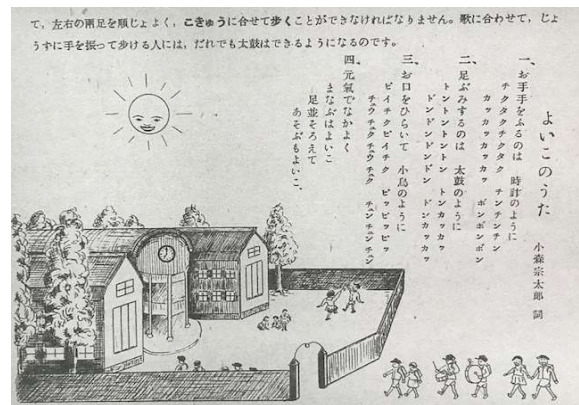 て，左右の兩足を順じょよく，こきゅうに合せて歩くことができなければなりません。歌に合わせて，じょ
うずに手を振って歩ける人には，だれでも太鼓はできるようになるのです。
よいこのうた
小森宗太郎 詞
一、お手手をふるのは 時計のように
チクタクチクタク チンチンチン
カッカッカッカッ ボンボンボン
二、足ぶみするのは 太鼓のように
トントントントン トンカッカッ
ドンドンドンドン ドンカッカッ
三、お口をひらいて 小鳥のように
ピイチクピイチク ピッピッピッ
チュウチュクチュウチュク チュンチュンチュン
四、元氣でなかよく
まなぶはよいこ
足並そろえて
あそぶもよいこ、